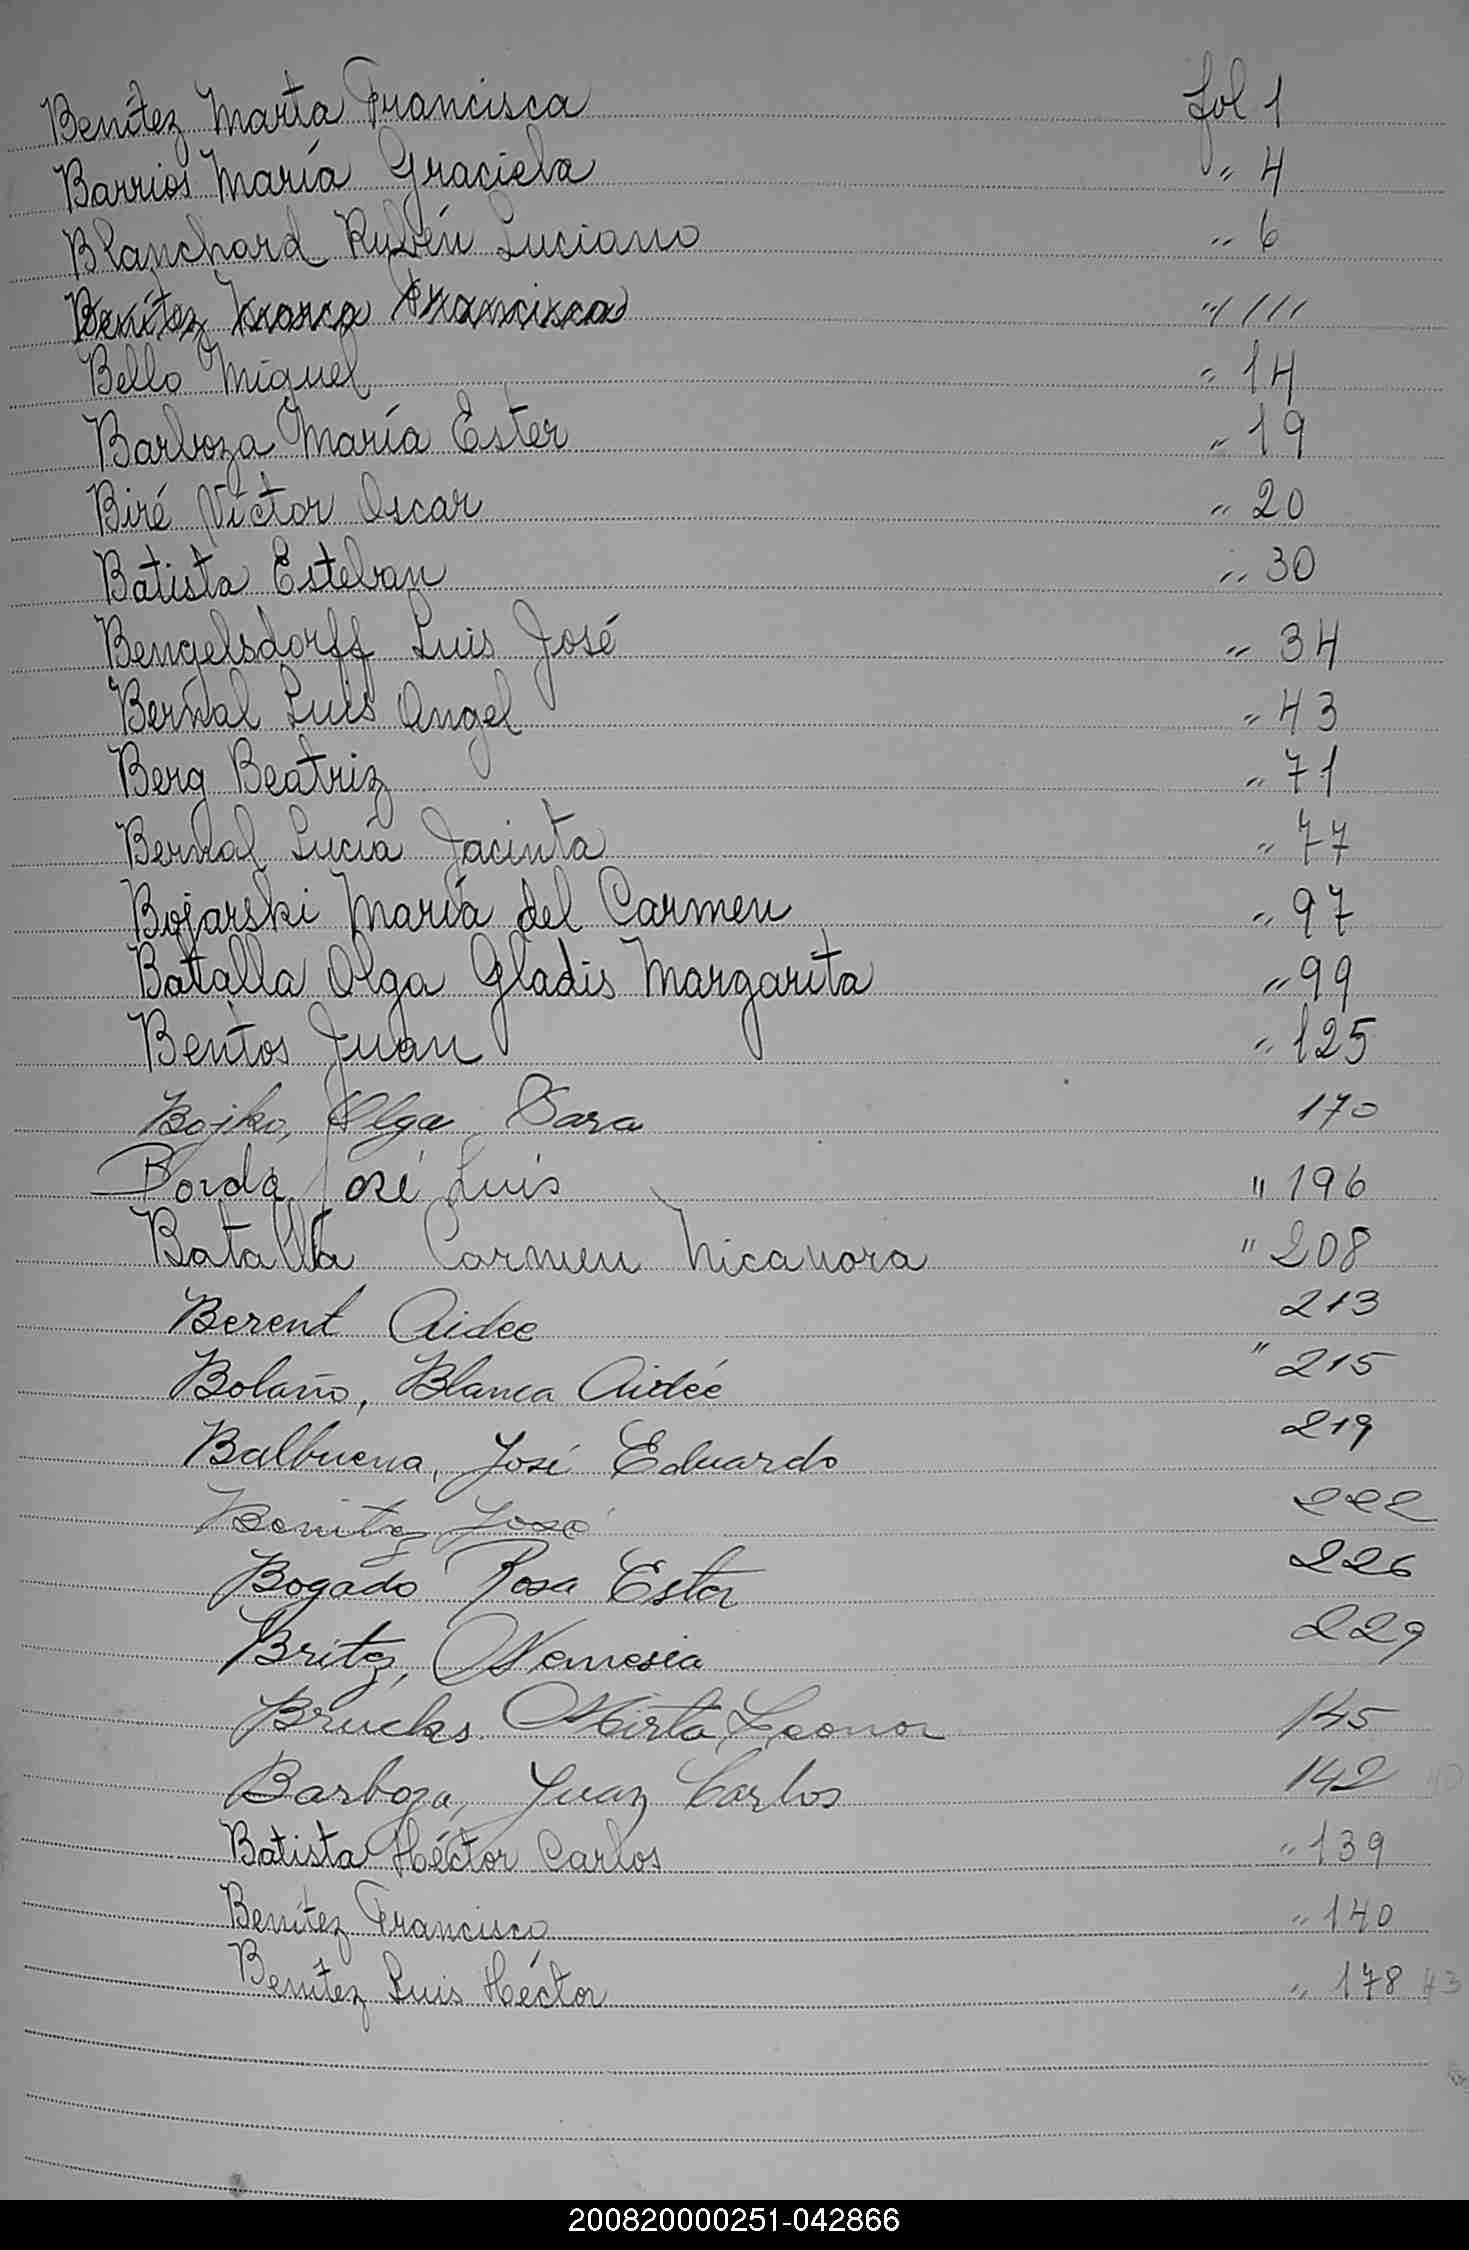 Benítez Marta Francisca fol 1
Barrios María Graciela " 4
Blanchard Rubén Luciano " 6
Benítez Francisca "
Bello Miguel " 14
Barboza María Ester " 19
Biré Víctor Oscar " 20
Batista Esteban " 30
Bengelsdorff Luis José " 34
Bernal Luis Angel " 43
Berg Beatriz " 71
Bernal Lucía Jacinta " 77
Bojarski María del Carmen " 97
Batalla Olga Gladis Margarita " 99
Bentos Juan " 125
Bojko, Olga Sara 170
Borda José Luis " 196
Batalla Carmen Nicanora " 208
Berent Aidee 213
Bolaño, Blanca Aidée " 215
Balbuena, José Eduardo 219
Benitez José 222
Bogado Rosa Ester 226
Britez, Nemesia 229
Brucks. Mirta Leonor 145
Barboza, Juan Carlos 142 40
Batista Héctor Carlos " 139
Benítez Francisco " 140
Benítez Luis Héctor " 178 43
200820000251-042866